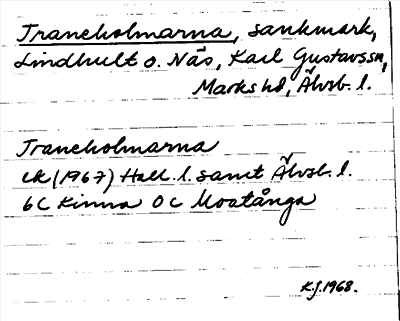 Traneholmarna, sankmark,
Lindhult o. Näs, Karl Gustavs sn,
Marks hd, Älvsb. l.
Traneholmarna
ek (1967) Hall. l. samt Älvsb. l.
6C Kinna 0c Moatånga
K.J. 1968.